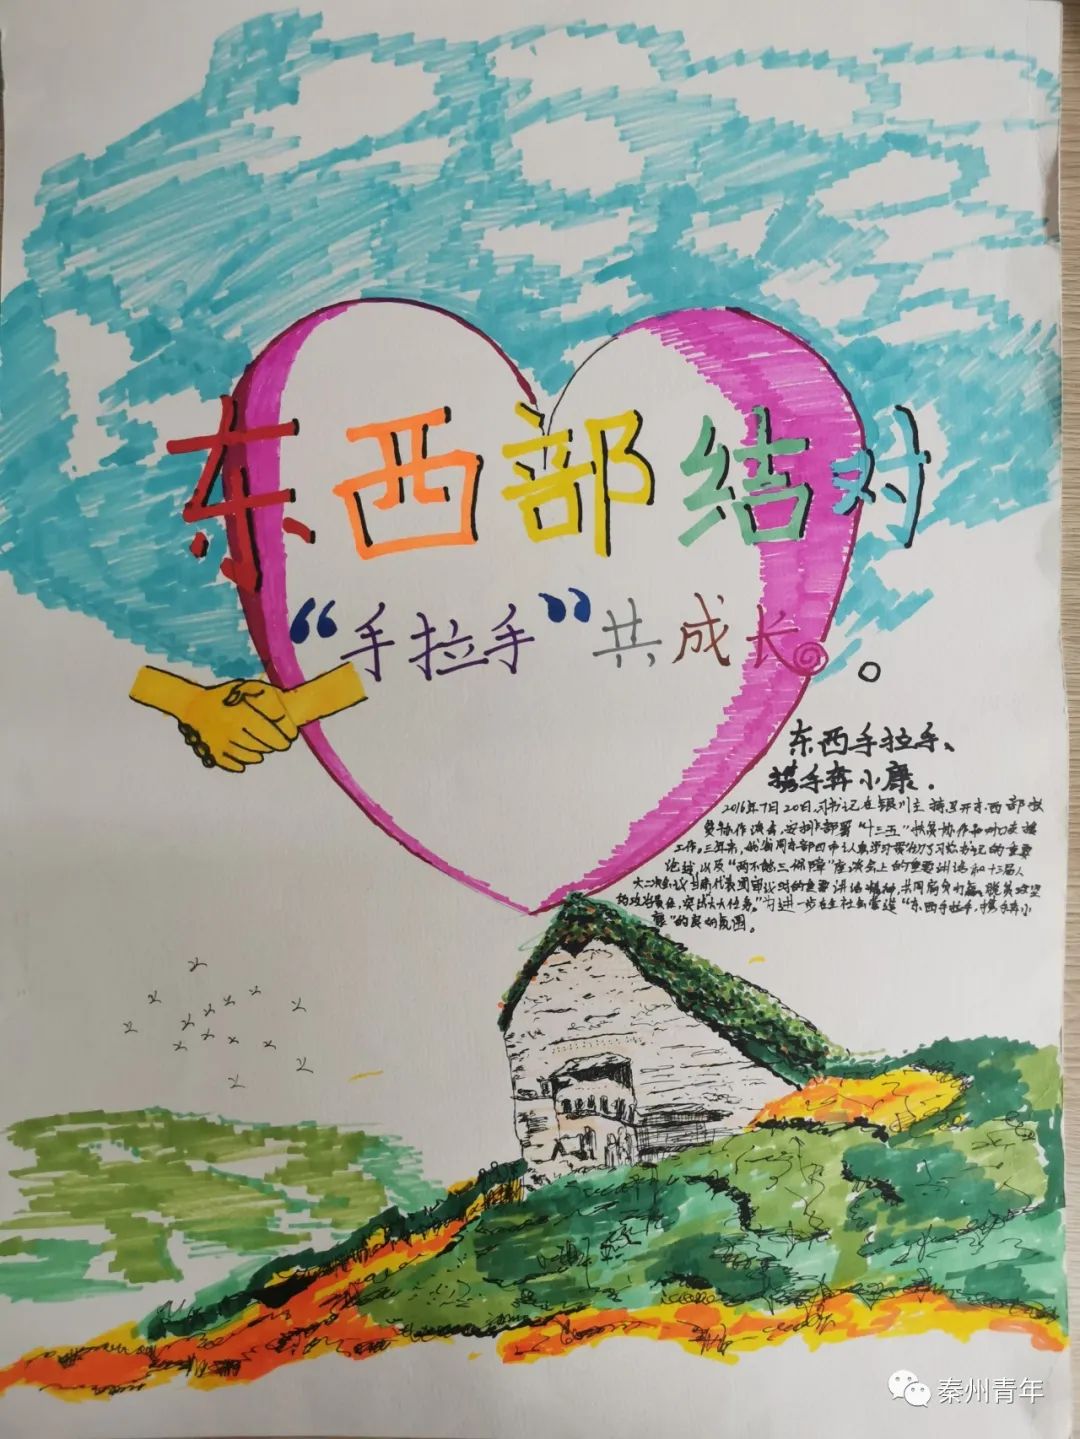 东西部结对
“手拉手”共成长。
东西手拉手、
携手奔小康.
2016年7月20日,习书记在银川主持召开东西部扶
贫协作 会,安排部署“十三五”扶贫协作和对口支援
工作。三年来, 四市认真学习贯彻了习总书记的重要
论述,以及“两不愁三保障”座谈会上的重要讲话和十三届人
大二次会议甘肃代表团审议时的重要讲话精神,共同肩负 脱贫攻坚
的政治责任, 为进一步在全社会营造“东西手拉手,携手奔小
康”的良好氛围。
秦州青年